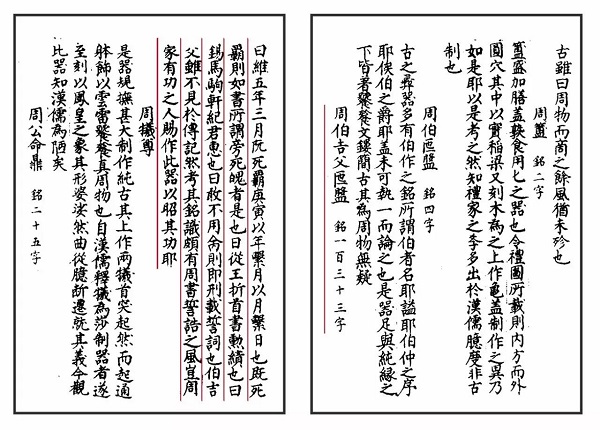 古雖曰周物而商之餘風猶未殄也
周簠 銘二字
簠盛加膳盖熟食用匕之器也今禮圖所載則内方而外
圓穴其中以實稻梁又刻木為之上作龜盖制作之異乃
如是耶以是考之然知禮家之李多出於漢儒臆度非古
制也
周伯匜盤 銘四字
古之彝器多有伯作之銘所謂伯者名耶謚耶伯仲之序
耶侯伯之爵耶盖未可執一而論之也是器足與純緣之
下皆著饕餮文鏤簡古其為周物無疑
周伯吉父匜盤 銘一百三十三字
曰維五年三月既死霸庚寅以年繫月以月繫日也既死
霸則如書所謂旁死魄者是也曰從王折首書勲績也曰
錫馬駒軒紀君恵也曰敢不用舍則即刑載誓詞也伯吉
父雖不見於傳記然考其銘識頗有周書誓誥之風豈周
家有功之人賜作此器以昭其功耶
周犧尊
是器規摭甚大制作純古其上作两犧首突起然而起適
躰飾以雲雷饕餮真周物也自漢儒釋犧為莎制器者遂
至刻以鳳皇之象其形婆浂然曲從臆断遷就其義今觀
比器知漢儒為陋矣
周公命鼎 銘二十五字